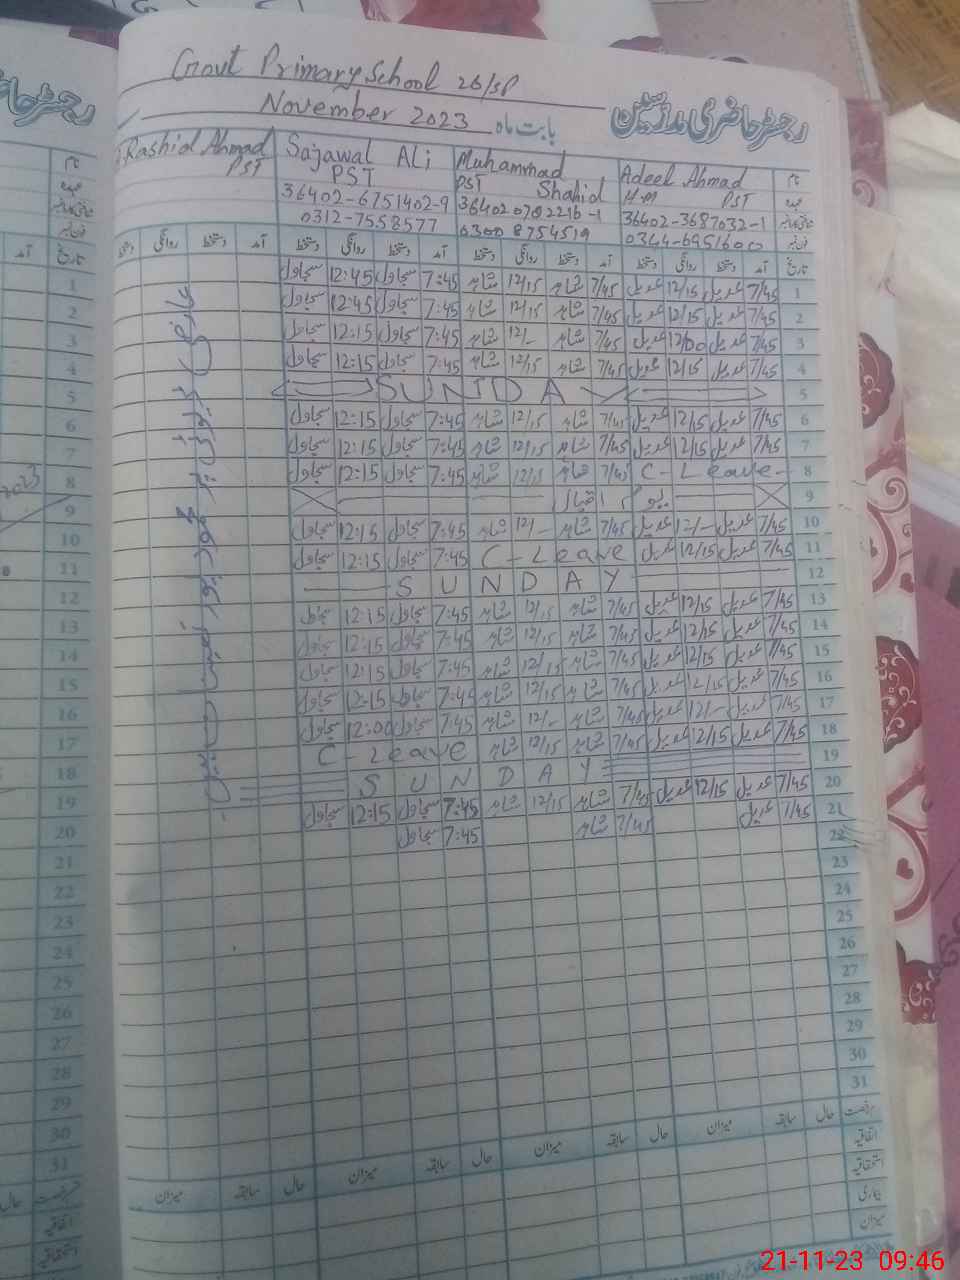 Govt Primary School 26/SP
رجسٹر حاضری مدرسین
بابت ماہ November 2023
نام Adeel Ahmad Muhammad Shahid Sajawal Ali Rashid Ahmad
عہدہ H.M PST PST PST PST
36402-3687032-1 364020782216-1 36402-6751402-9
فون نمبر 0344-6951600 0300 8754519 0312-7558577
تاریخ آمد دستخط روانگی دستخط آمد دستخط روانگی دستخط آمد دستخط روانگی دستخط آمد دستخط روانگی دستخط
1 7/45 عدیل 12/15 عدیل 7/45 شاہد 12/15 شاہد 7:45 سجاول 12:45 سجاول
2 7/45 عدیل 12/15 عدیل 7/45 شاہد 12/15 شاہد 7:45 سجاول 12:45 سجاول
3 7/45 عدیل 12/00 عدیل 7/45 شاہد 12/- شاہد 7:45 سجاول 12:15 سجاول
4 7/45 عدیل 12/15 عدیل 7/45 شاہد 12/15 شاہد 7:45 سجاول 12:15 سجاول
5 SUNDAY
6 7/45 عدیل 12/15 عدیل 7/45 شاہد 12/15 شاہد 7:45 سجاول 12:15 سجاول
7 7/45 عدیل 12/15 عدیل 7/45 شاہد 12/15 شاہد 7:45 سجاول 12:15 سجاول
8 C-Leave 7/45 شاہد 12/15 شاہد 7:45 سجاول 12:15 سجاول
9 یوم اقبال
10 7/45 عدیل 12/- عدیل 7/45 شاہد 12/- شاہد 7:45 سجاول 12:15 سجاول
11 7/45 عدیل 12/15 عدیل C-Leave 7:45 سجاول 12:15 سجاول
12 SUNDAY
13 7/45 عدیل 12/15 عدیل 7/45 شاہد 12/15 شاہد 7:45 سجاول 12:15 سجاول
14 7/45 عدیل 12/15 عدیل 7/45 شاہد 12/15 شاہد 7:45 سجاول 12:15 سجاول
15 7/45 عدیل 12/15 عدیل 7/45 شاہد 12/15 شاہد 7:45 سجاول 12:15 سجاول
16 7/45 عدیل 12/15 عدیل 7/45 شاہد 12/15 شاہد 7:45 سجاول 12:15 سجاول
17 7/45 عدیل 12/- عدیل 7/45 شاہد 12/- شاہد 7:45 سجاول 12:00 سجاول
18 7/45 عدیل 12/15 عدیل 7/45 شاہد 12/15 شاہد C-Leave
19 SUNDAY
20 7/45 عدیل 12/15 عدیل 7/45 شاہد 12/15 شاہد 7:45 سجاول 12:15 سجاول
21 7/45 عدیل 7/45 شاہد 7:45 سجاول
22
23
24
25
26
27
28
29
30
31
رخصت حال سابقہ میزان حال سابقہ میزان حال سابقہ میزان حال سابقہ میزان
اتفاقیہ
استحقاقیہ
بیماری
میزان
21-11-23 09:46